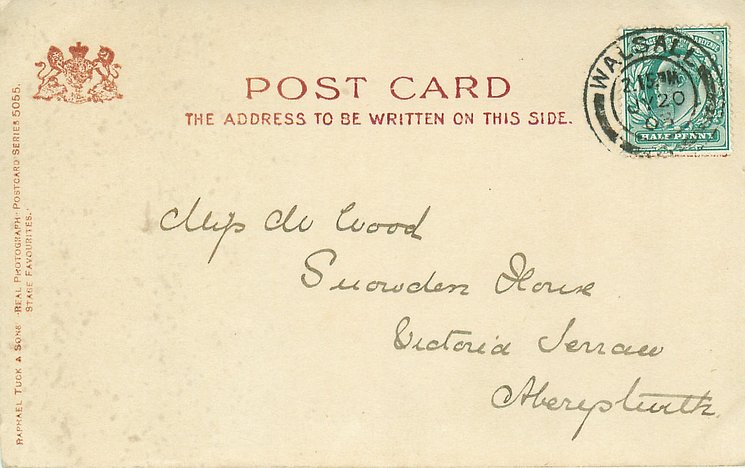 POST CARD
THE ADDRESS TO BE WRITTEN ON THIS SIDE.
WALSALL
2.15 PM
20
03
HALF PENNY
Miss M Wood
Snowden House
Victoria Terrace
Aberystwith
RAPHAEL TUCK & SONS' "REAL PHOTOGRAPH" POSTCARD SERIES 5055.
STAGE FAVOURITES.